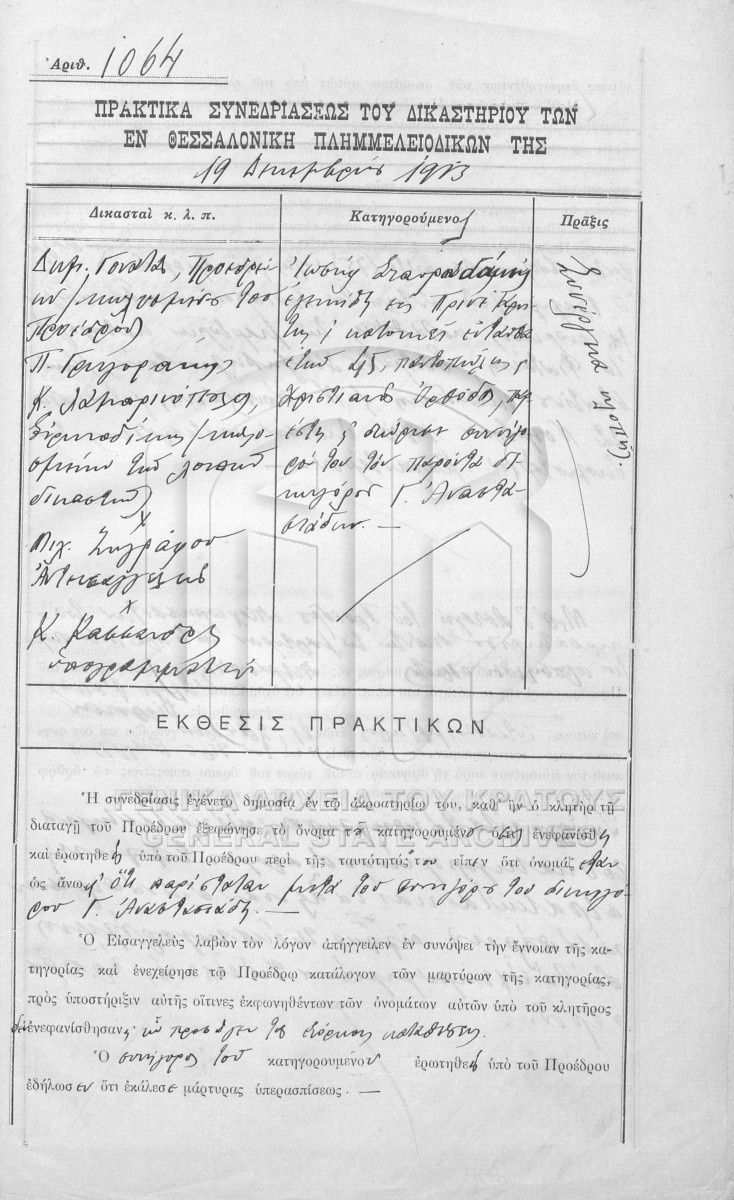 Ἀριθ. 1064
ΠΡΑΚΤΙΚΑ ΣΥΝΕΔΡΙΑΣΕΩΣ ΤΟΥ ΔΙΚΑΣΤΗΡΙΟΥ ΤΩΝ
ΕΝ ΘΕΣΣΑΛΟΝΙΚΗ ΠΛΗΜΜΕΛΕΙΟΔΙΚΩΝ ΤΗΣ
19 Δεκεμβρίου 1913
Δικασταὶ κ. λ. π.
Δημ. Γονατᾶς, Προεδρεύ
ων κωλυομένου τοῦ
Προέδρου
Π. Γρηγοράκης
Κ. Λαμπρινόπουλος,
Εἰρηνοδίκης
δικαστῶν
Μιχ. Ζωγράφου
Ἀντεισαγγελεύς
Κ. Κάσσανδρος
ὑπογραμματεύς
Κατηγορούμενος
Ἰωσὴφ
ἐτῶν παντοπώλης
Χριστιανὸς Ὀρθόδοξος, παρ
έστη διώρισε συνήγο
ρό του τὸν παρόντα δι
κηγόρον Γ. Ἀναστα
σιάδην. —
Πρᾶξις
κλοπή
ΕΚΘΕΣΙΣ ΠΡΑΚΤΙΚΩΝ
Ἡ συνεδρίασις ἐγένετο δημοσίᾳ ἐν τῷ ἀκροατηρίῳ του, καθ' ἣν ὁ κλητὴρ τῇ
διαταγῇ τοῦ Προέδρου ἐξεφώνησε τὸ ὄνομα τοῦ κατηγορουμένου ὅστις ἐνεφανίσθη
καὶ ἐρωτηθεὶς ὑπὸ τοῦ Προέδρου περὶ τῆς ταυτότητός του εἶπεν ὅτι ὀνομάζεται
ὡς ἄνω ὅτι παρίσταται μετὰ τοῦ συνηγόρου του δικηγό
ρου Γ. Ἀναστασιάδη. —
Ὁ Εἰσαγγελεὺς λαβὼν τὸν λόγον ἀπήγγειλεν ἐν συνόψει τὴν ἔννοιαν τῆς κα-
τηγορίας καὶ ἐνεχείρησε τῷ Προέδρῳ κατάλογον τῶν μαρτύρων τῆς κατηγορίας,
πρὸς ὑποστήριξιν αὐτῆς οἵτινες ἐκφωνηθέντων τῶν ὀνομάτων αὐτῶν ὑπὸ τοῦ κλητῆρος
δὲν ἐνεφανίσθησαν
Ὁ συνήγορος τοῦ κατηγορουμένου ἐρωτηθεὶς ὑπὸ τοῦ Προέδρου
ἐδήλωσεν ὅτι ἐκάλεσε μάρτυρας ὑπερασπίσεως. —
ΓΕΝΙΚΑ ΑΡΧΕΙΑ ΤΟΥ ΚΡΑΤΟΥΣ
GENERAL STATE ARCHIVES